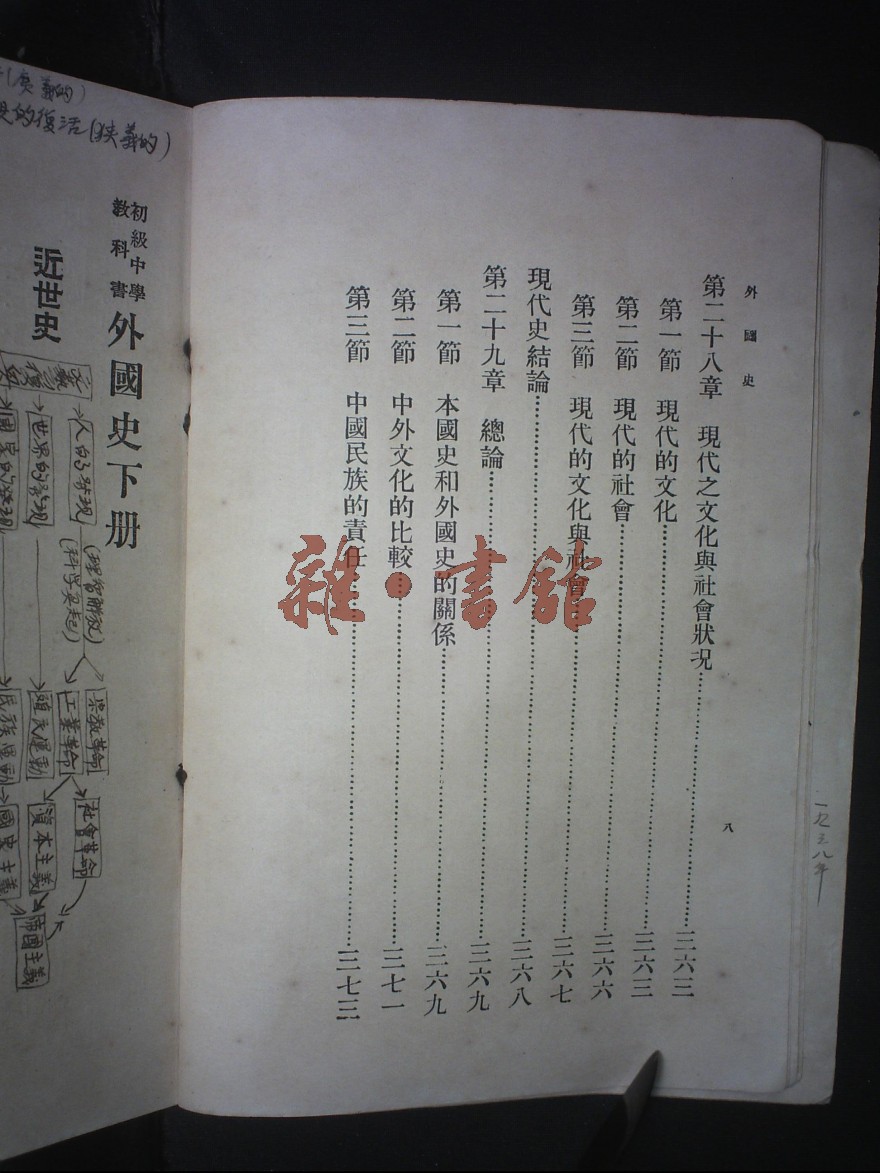 外國史
第二十八章 現代之文化與社會狀況……三六三
第一節 現代的文化……三六三
第二節 現代的社會……三六六
第三節 現代的文化與社會……三六七
現代史結論……三六八
第二十九章 總論……三六九
第一節 本國史和外國史的關係……三六九
第二節 中外文化的比較……三七一
第三節 中國民族的責任……三七三
八
一九三八年
雜·書館
初級中學
教科書
外國史下册
近世史
(廣義的)
的復活(狹義的)
文藝復興
人的發現
世界的發現
國家的發現
(理智解放)
(科學突起)
宗教革命
工業革命
殖民運動
民族運動
社會革命
資本主義
國家主義
帝國主義